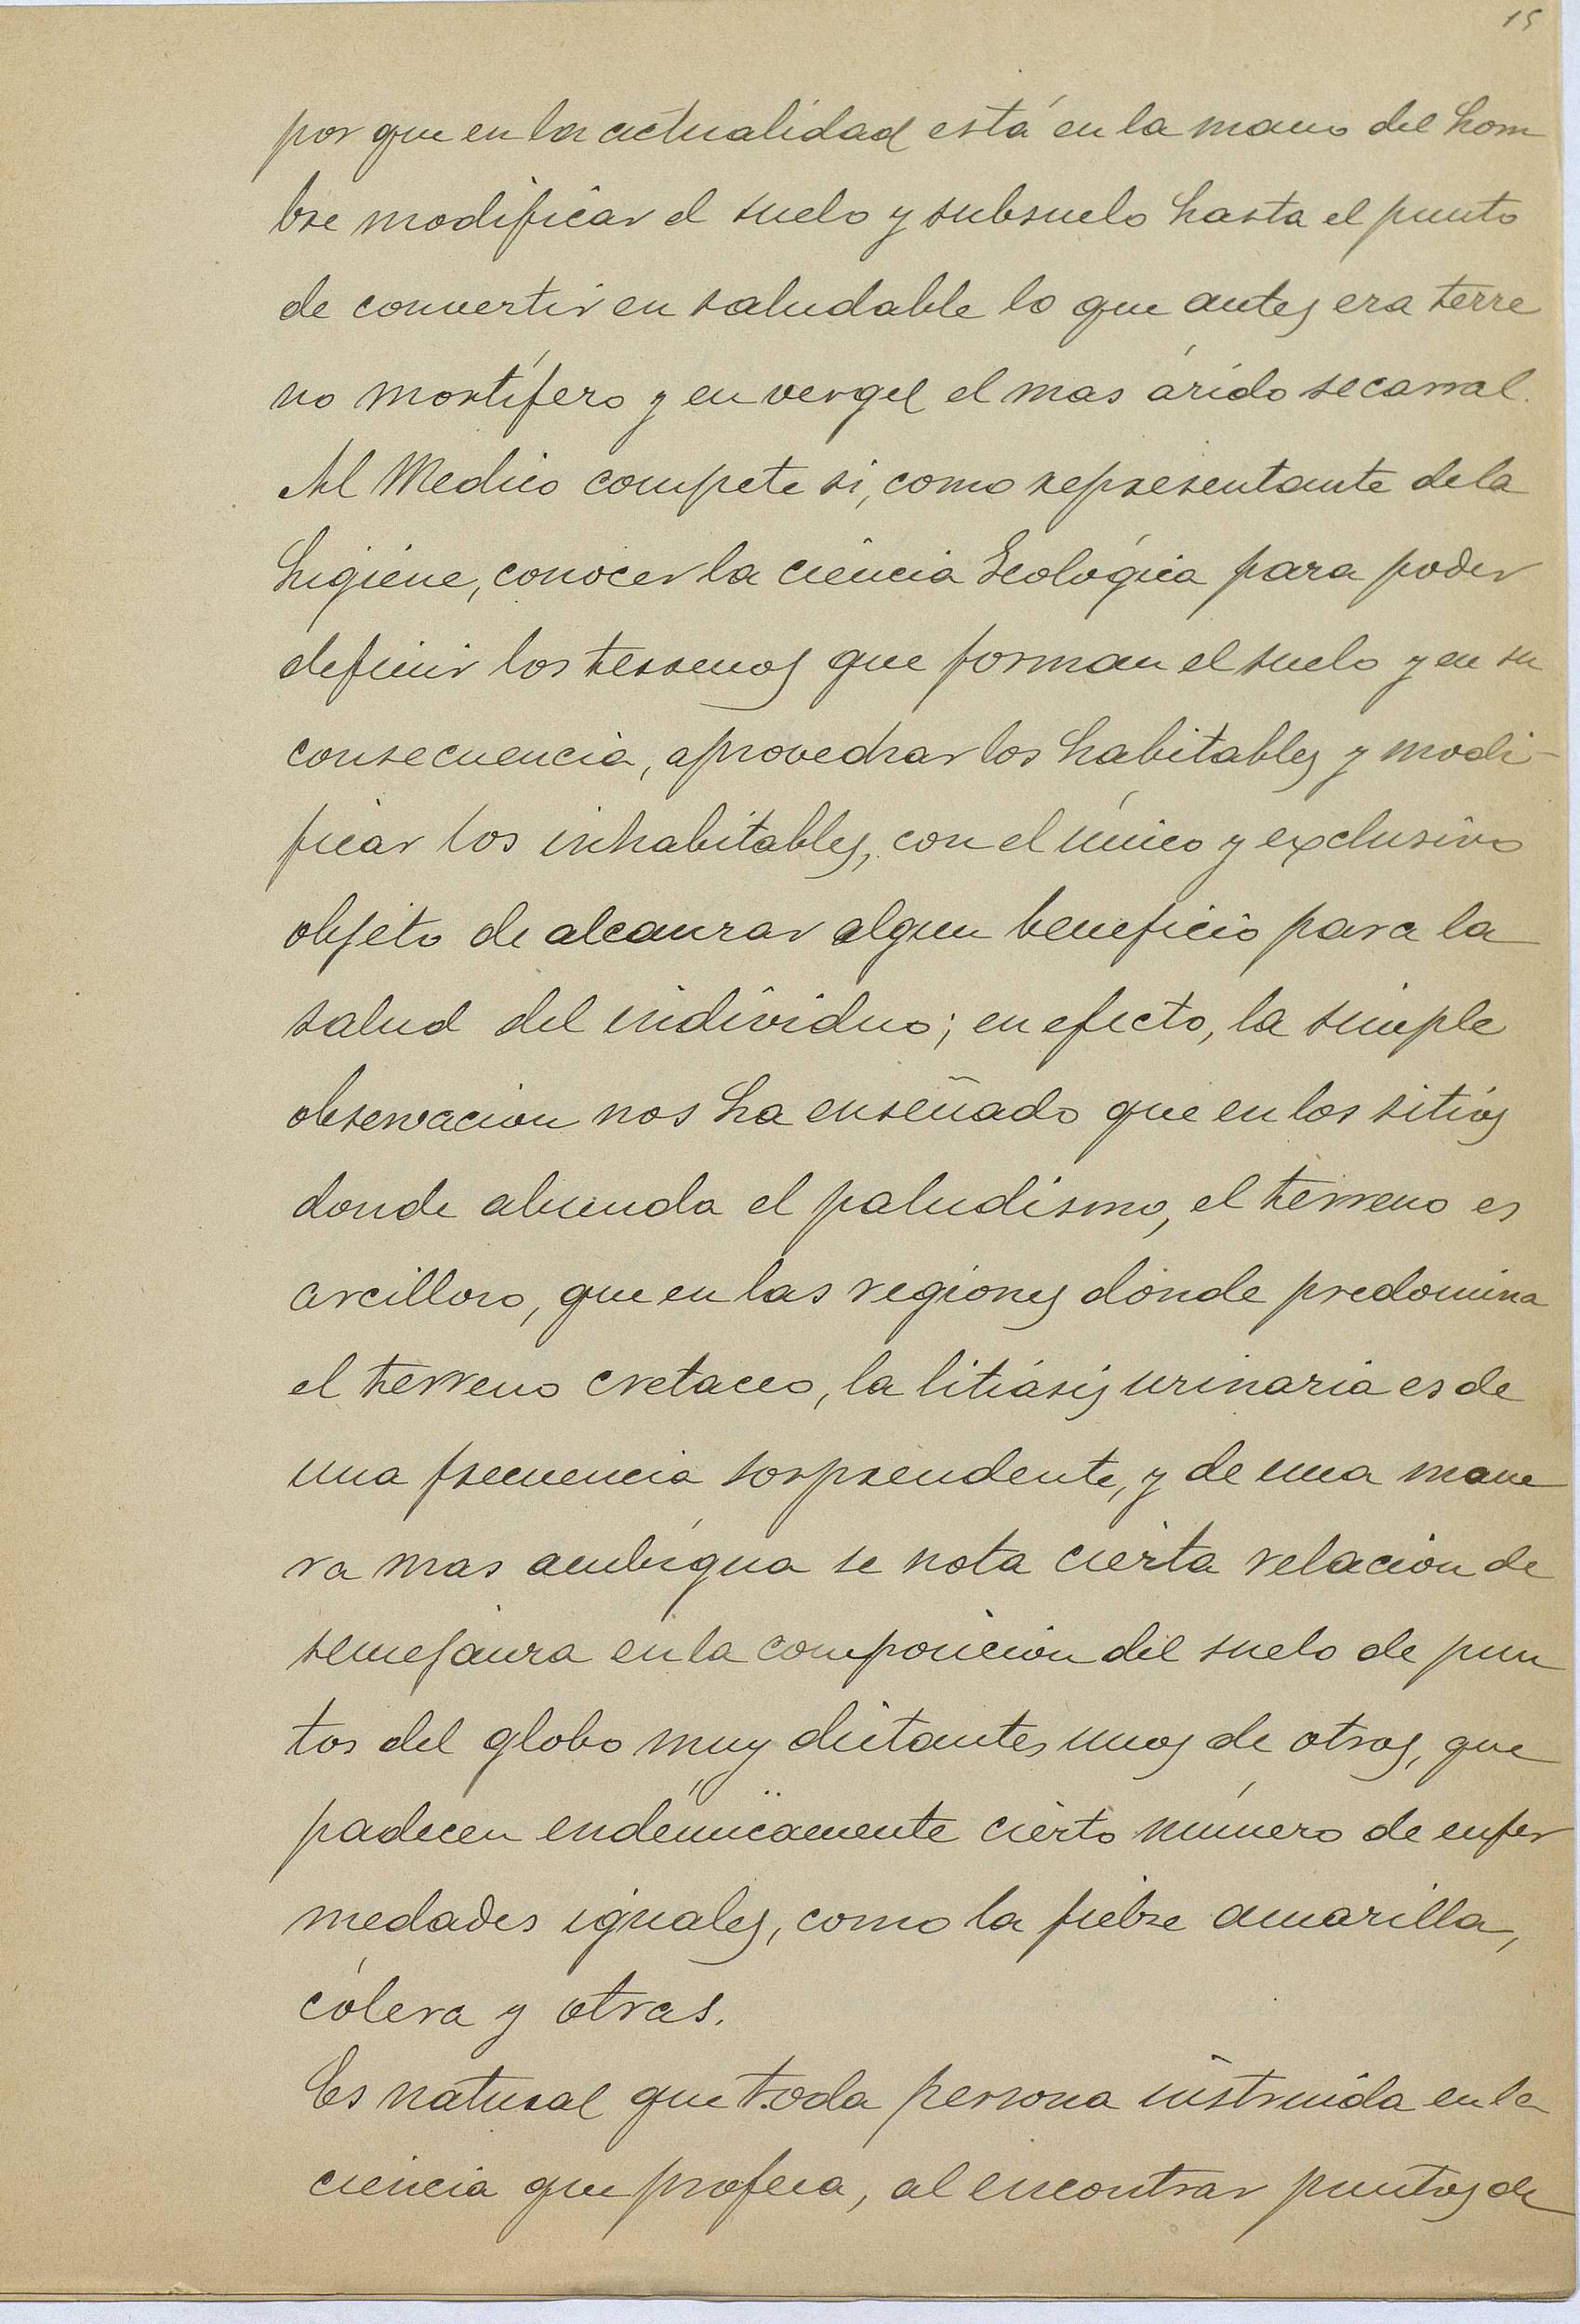 15
por que en la actualidad está en la mano del hom
bre modificar el suelo y subsuelo hasta el punto
de convertir en saludable lo que antes era terre
no mortífero y en vergel el mas árido secarral.
Al Medico compete si, como representante de la
higiene, conocer la ciencia Geológica para poder
definir los terrenos que forman el suelo y en su
consecuencia, aprovechar los habitables y modi-
ficar los inhabitables, con el único y exclusivo
objeto de alcanzar algun beneficio para la
salud del individuo; en efecto, la simple
observacion nos ha enseñado que en los sitios
donde abunda el paludismo, el terreno es
arcilloso, que en las regiones donde predomina
el terreno cretaceo, la litiásis urinaria es de
una frecuencia sorprendente, y de una mane
ra mas ambígua se nota cierta relacion de
semejanza en la composicion del suelo de pun
tos del globo muy distantes unos de otros, que
padecen endémicamente cierto número de enfer
medades iguales, como la fiebre amarilla,
cólera y otras.
Es natural que toda persona instruida en la
ciencia que profesa, al encontrar puntos de